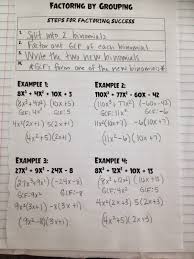 FACTORING BY GROUPING
STEPS FOR FACTORING SUCCESS
1. Split into 2 binomials
2. Factor out GCF of each binomial
3. Write the two new binomials
* GCFs form one of the new binomials *
EXAMPLE 1:
8X³ + 4X² + 10X + 5
(8x³ + 4x²) (10x + 5)
GCF: 4x² GCF: 5
4x²(2x+1) 5(2x+1)
(4x²+5)(2x+1)
EXAMPLE 2:
110X³ + 77X² - 60X - 42
(110x³ + 77x²) (-60x - 42)
GCF: 11x² GCF: -6
11x²(10x+7) -6(10x+7)
(11x²-6)(10x+7)
EXAMPLE 3:
27X³ + 9X² - 24X - 8
(27x³ + 9x²) (-24x - 8)
GCF: 9x² GCF: -8
9x²(3x+1) -8(3x+1)
(9x²-8)(3x+1)
EXAMPLE 4:
(10x + 15)
GCF: 4x² GCF: 5
4x²(2x+3) 5(2x+3)
(4x²+5)(2x+3)